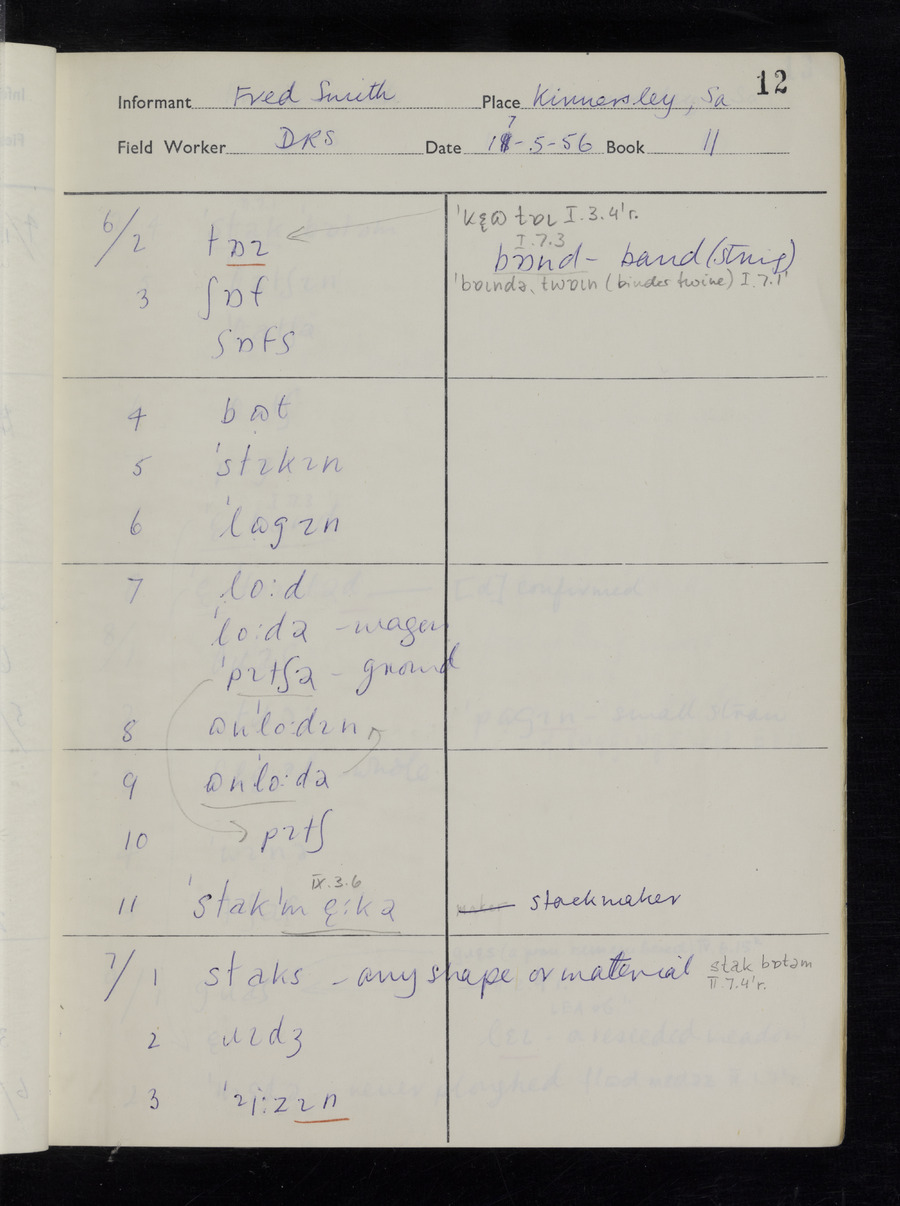 12
Informant Fred Smith Place Kinnersley, Sa
7
Field Worker DRS Date 1 -.5-56 Book 11
6/2 tɒɪ
I.3.4'r.
I.7.3
bɒnd - band (string)
'bɒɪndə, twɒɪn (binder twine) I.7.1'
3 ʃɒf
ʃɒfs
4 bɷt
5 'stɪkɪn
6 'lɷgɪn
7 lo:d
'lo:də - wagon
'pɪtʃə - ground
8 ɷn'lo:dɪn
9 ɷn'lo:də
10 pɪtʃ
IX.3.6
11 'stak'mę:kə stackmaker
7/1 staks - any shape or material stak bɒtəm
II.7.4'r.
2 ɹɪdʒ
3 'ɪi:zɪn